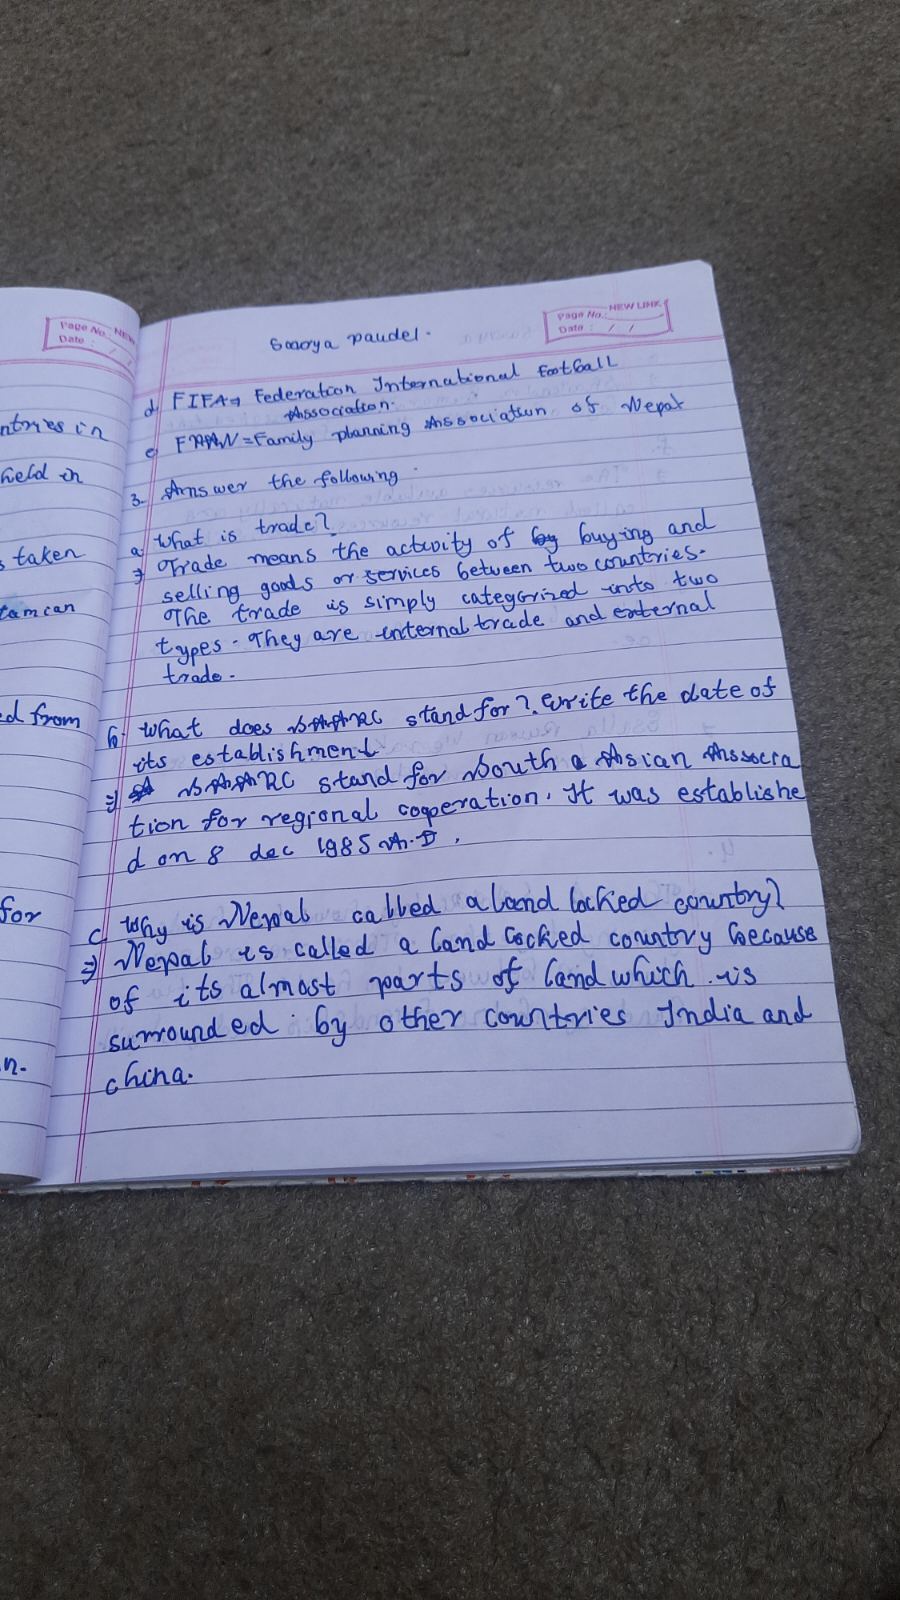 Page No.: NEW
Date : / /
ntries in
held in
s taken
ed from
for
n.
Page No.: NEW LINK
Date : / /
paudel.
d, FIFA → Federation International Football
Association.
e, FPAN = Family planning Association of Nepal
3. Answer the following.
a, What is trade?
⇒ Trade means the activity of by buying and
selling goods or services between two countries.
The trade is simply categorized into two
types. They are internal trade and external
trade.
b, What does SAARC stand for? Write the date of
its establishment
⇒ SAARC stand for South a Asian Associa
tion for regional cooperation. It was establishe
d on 8 dec 1985 A.D.
c, Why is Nepal called a land locked country?
⇒ Nepal is called a land locked country because
of its almost parts of land which is
surrounded by other countries India and
china.